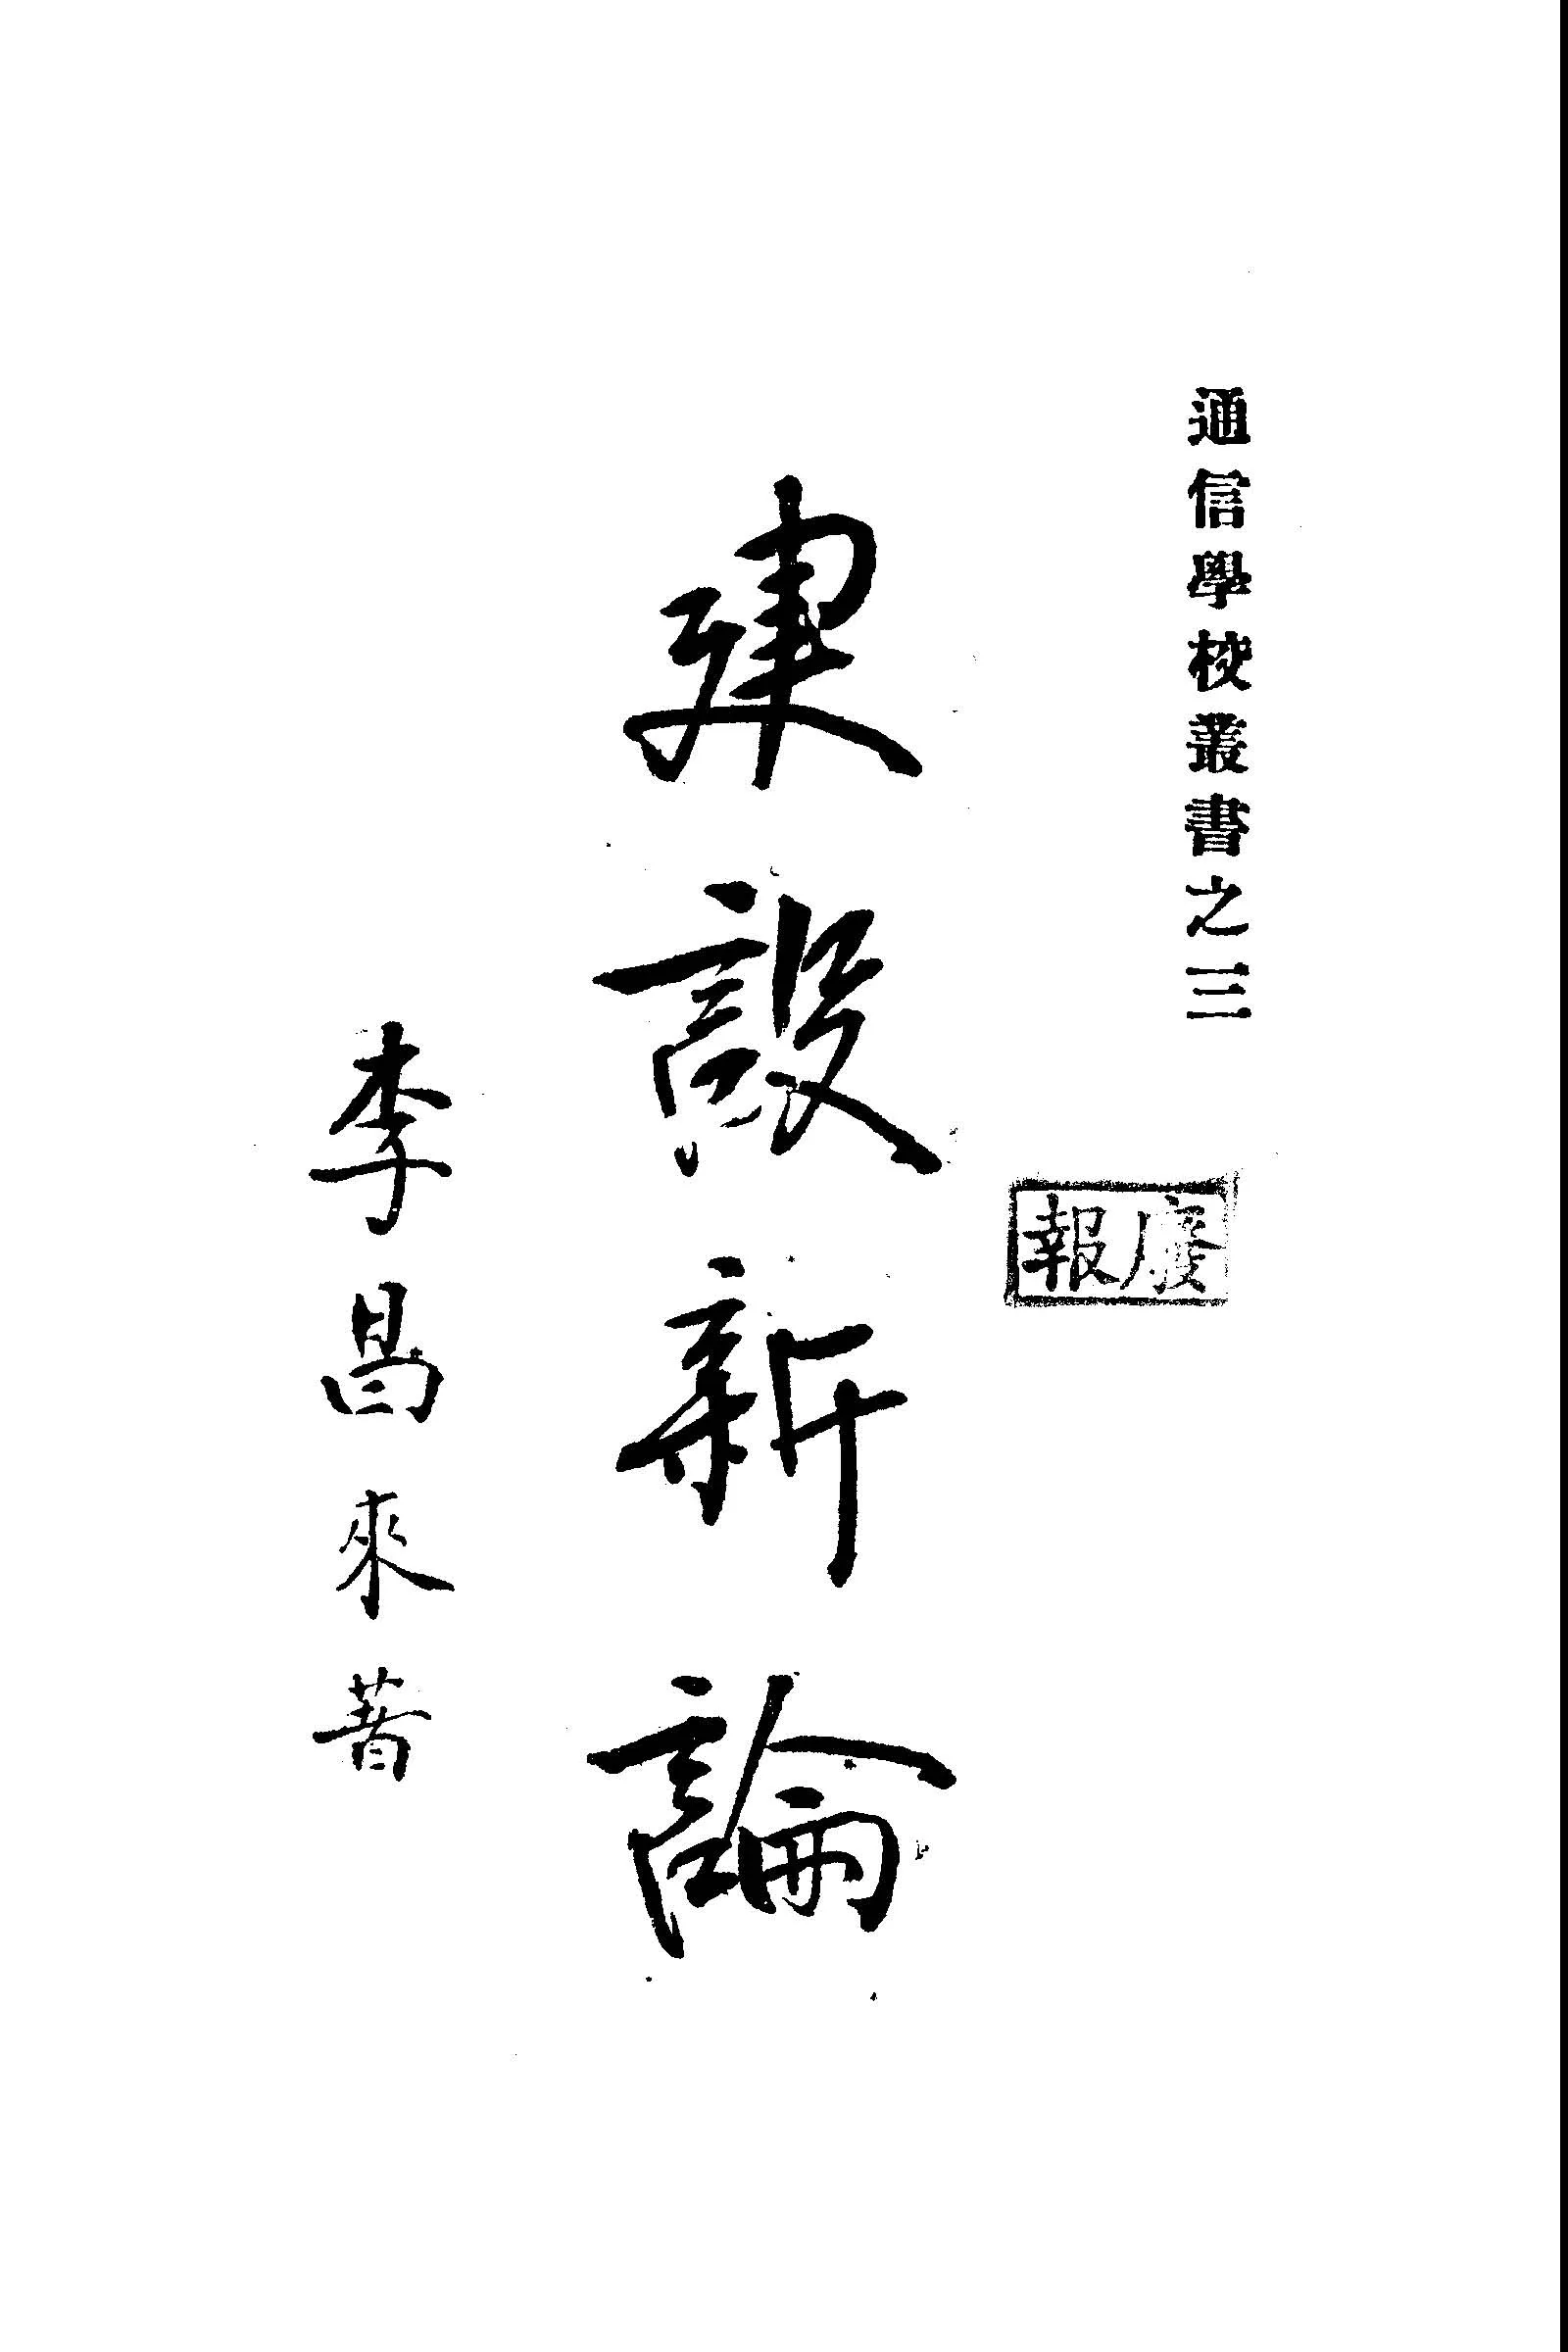 通信學校叢書之三
建設新論
李昌來著
廢報